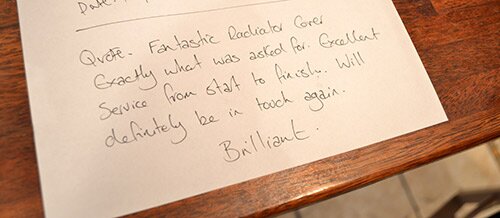 Date
Quote - Fantastic Radiator Cover
Exactly what was asked for. Excellent
Service from start to finish. Will
definitely be in touch again.
Brilliant.